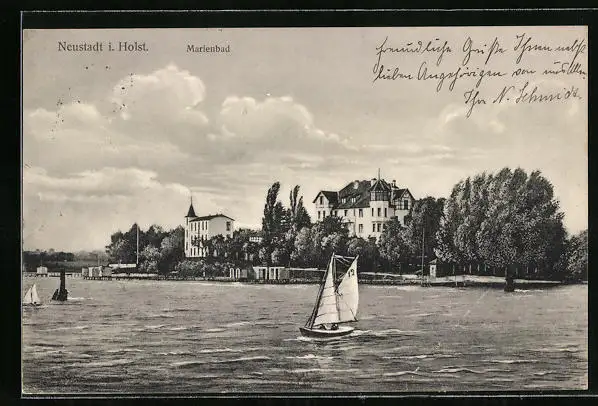 Neustadt i. Holst. Marienbad
freundliche Grüße Ihnen nebst
lieben Angehörigen von uns Allen
Ihr N. Schmidt.